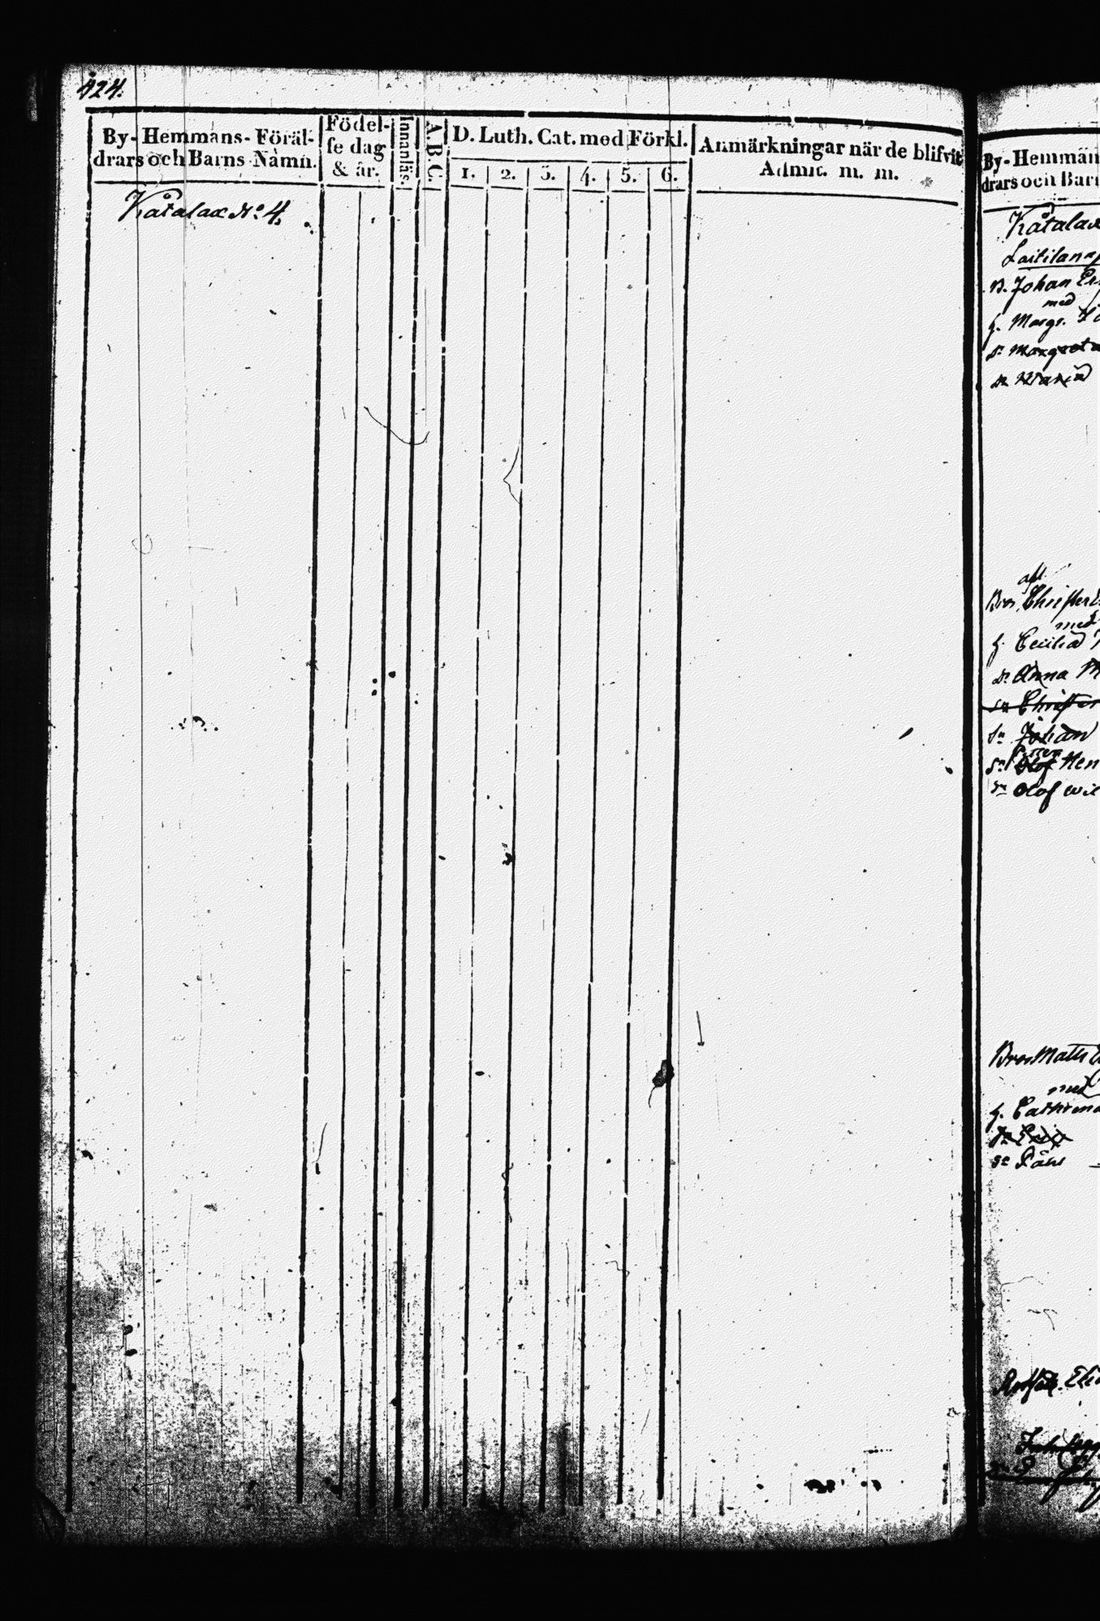 424.
By-Hemmans-Föräl-
drars och Barns Namn.
Födel-
se dag
& år.
Innanläs.
A.B.C.
D. Luth. Cat. med Förkl.
1. 2. 3. 4. 5. 6.
Anmärkningar när de blifvit
Admit. m. m.
Kåtalax No 4.
By-Hemman
drars och Barn
Kåtalax
B. Johan
med
h. Margr.
dr Margreta
dr Maria
afl.
Bror Christer
med
h. Cecilia
dr Anna M
sn Christer
sn Johan
Hen
sn Olof wil
Bror Matts
med
h. Cathrina
sn Eric